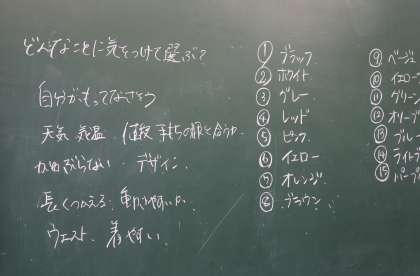 どんなことに気をつけて選ぶ?
自分がもってなさそう
天気 気温 値段 手持ちの服と合うか
かぶらない デザイン
長くつかえる 動きやすいか
ウエスト 着やすい
① ブラック
② ホワイト
③ グレー
④ レッド
⑤ ピンク
⑥ イエロー
⑦ オレンジ
⑧ ブラウン
⑨ ベージュ
⑩ イエロー
⑪ グリーン
⑫ オリーブ
⑬ ブルー
⑭ ライトブ
⑮ パープ